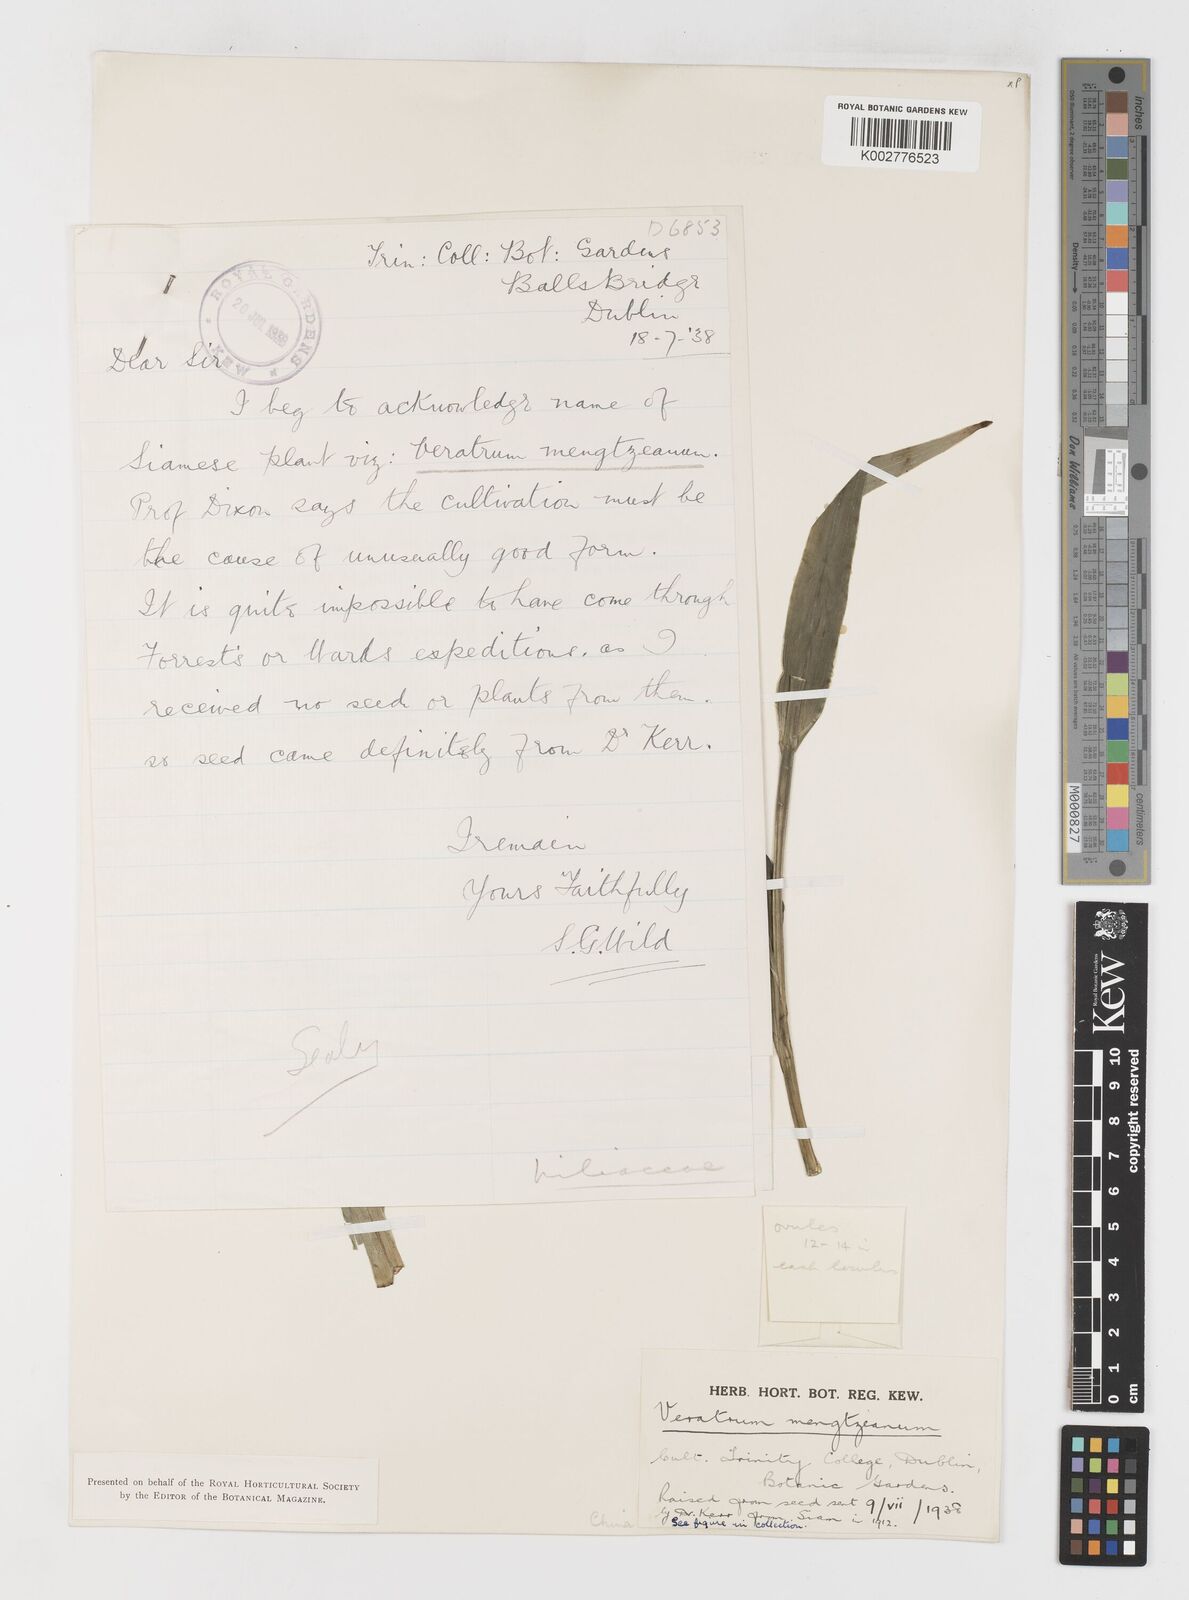 ROYAL BOTANIC GARDENS KEW
K002776523
D6853
Trin: Coll: Bot: Gardens
Balls Bridge
Dublin
18-7-'38
ROYAL GARDENS
20 JUL 1938
KEW
Dear Sir
I beg to acknowledge name of
Siamese plant viz: Veratrum mengtzeanum.
Prof Dixon says the cultivation must be
the cause of unusually good form.
It is quite impossible to have come through
Forrest's or Wards expeditions. as I
received no seed or plants from them.
so seed came definitely from Dr Kerr.
I remain
Yours Faithfully
S.G.Wild
Sealy
Liliaceae
ovules
12-14 in
each loculus
HERB. HORT. BOT. REG. KEW.
Veratrum mengtzeanum
Cult. Trinity College, Dublin,
Botanic Gardens.
Raised from seed sent 9/vii/1938
by Dr. Kerr from Siam in 1912.
See figure in collection.
China
Presented on behalf of the ROYAL HORTICULTURAL SOCIETY
by the EDITOR of the BOTANICAL MAGAZINE.
inches
centimeters
Density
Don Williams
M000827
Royal Botanic Gardens
Kew
copyright reserved
0 1 2 3 4 5 6 7 8 9 10
cm